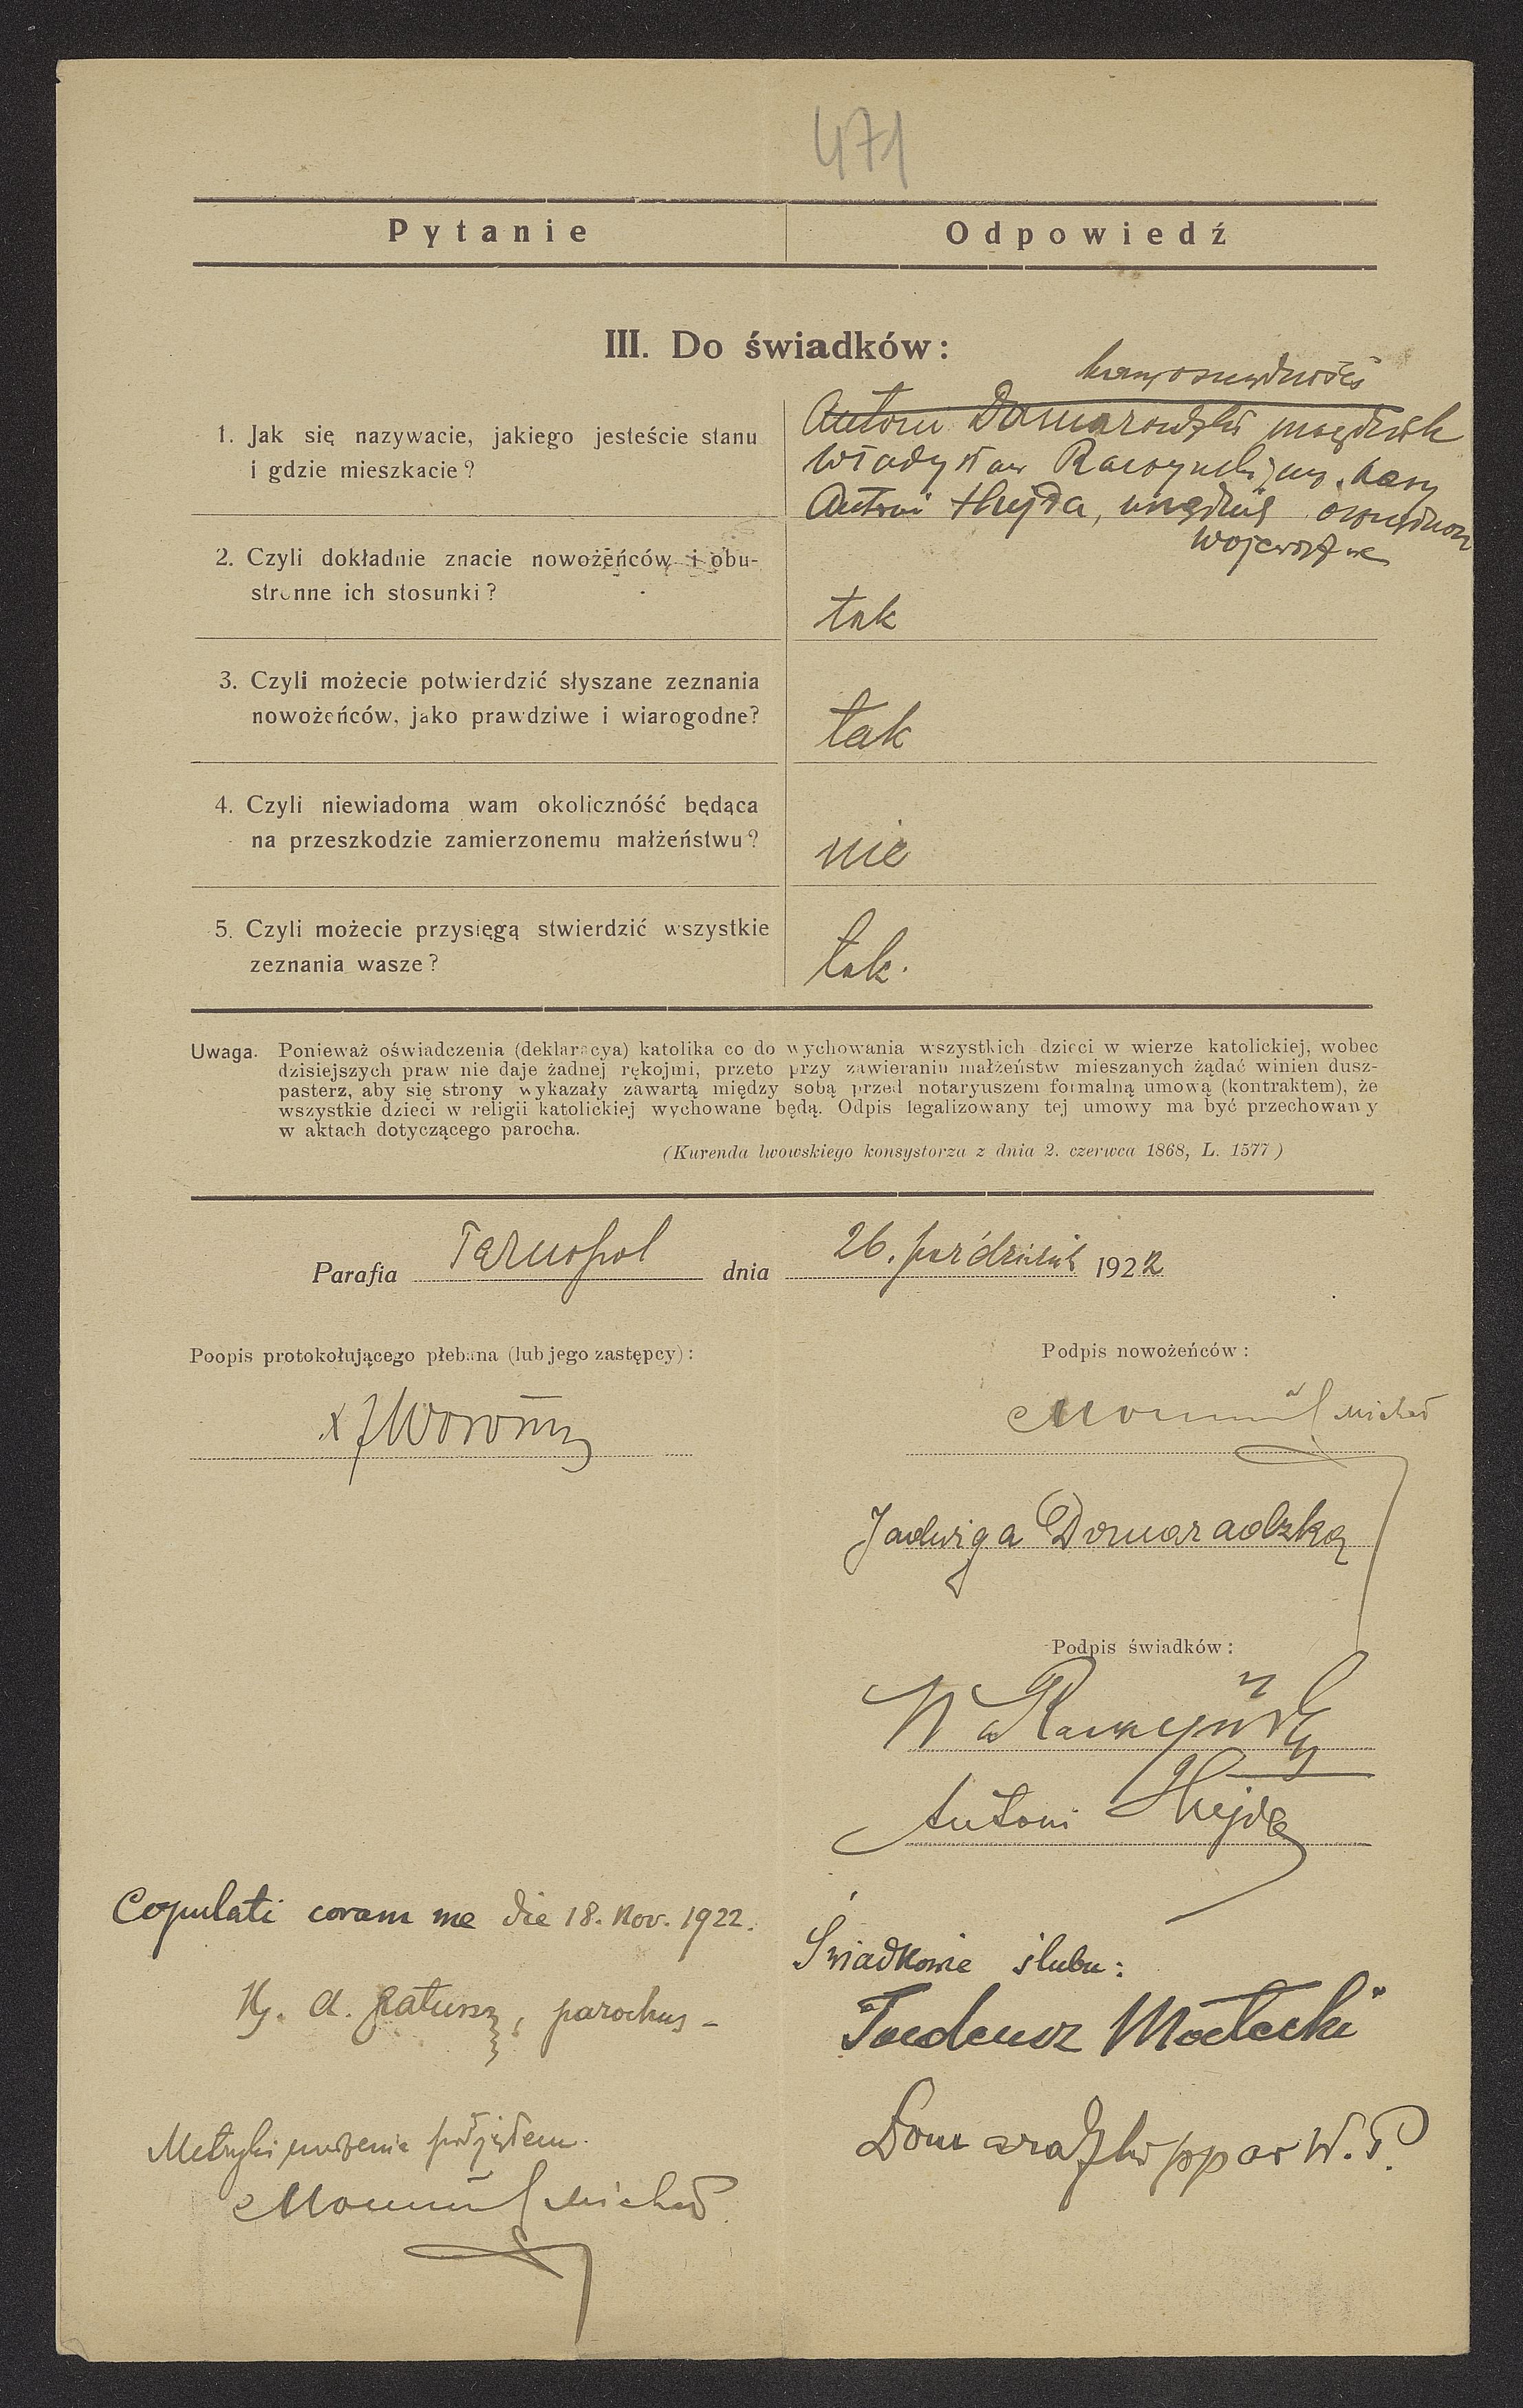 471
Pytanie
Odpowiedź
III. Do świadków:
1. Jak się nazywacie, jakiego jesteście stanu
i gdzie mieszkacie?
Antoni Domaradzki urzędnik
Władysław Raczyński, kasy
Antoni Hejda, urzędnik
2. Czyli dokładnie znacie nowożeńców i obu-
stronne ich stosunki?
tak
3. Czyli możecie potwierdzić słyszane zeznania
nowożeńców, jako prawdziwe i wiarogodne?
tak
4. Czyli niewiadoma wam okolicznóść będąca
na przeszkodzie zamierzonemu małżeństwu?
nie
5. Czyli możecie przysięgą stwierdzić wszystkie
zeznania wasze?
tak.
Uwaga. Ponieważ oświadczenia (deklaracya) katolika co do wychowania wszystkich dzieci w wierze katolickiej, wobec
dzisiejszych praw nie daje żadnej rękojmi, przeto przy zawieraniu małżeństw mieszanych żądać winien dusz-
pasterz, aby się strony wykazały zawartą między sobą przed notaryuszem formalną umową (kontraktem), że
wszystkie dzieci w religii katolickiej wychowane będą. Odpis legalizowany tej umowy ma być przechowany
w aktach dotyczącego parocha.
(Kurenda lwowskiego konsystorza z dnia 2. czerwca 1868, L. 1577)
Parafia Tarnopol dnia 26. październik 1922
Poopis protokołującego plebana (lub jego zastępcy):
Podpis nowożeńców:
Michał
Jadwiga Domaradzka
Podpis świadków:
Wł Raczyński
Antoni Hejda
Copulati coram me die 18. Nov. 1922.
parochus
Świadkowie ślubu:
Tadeusz
Domaradzki ppor W. P.
Metryki podjąłem.
Michał